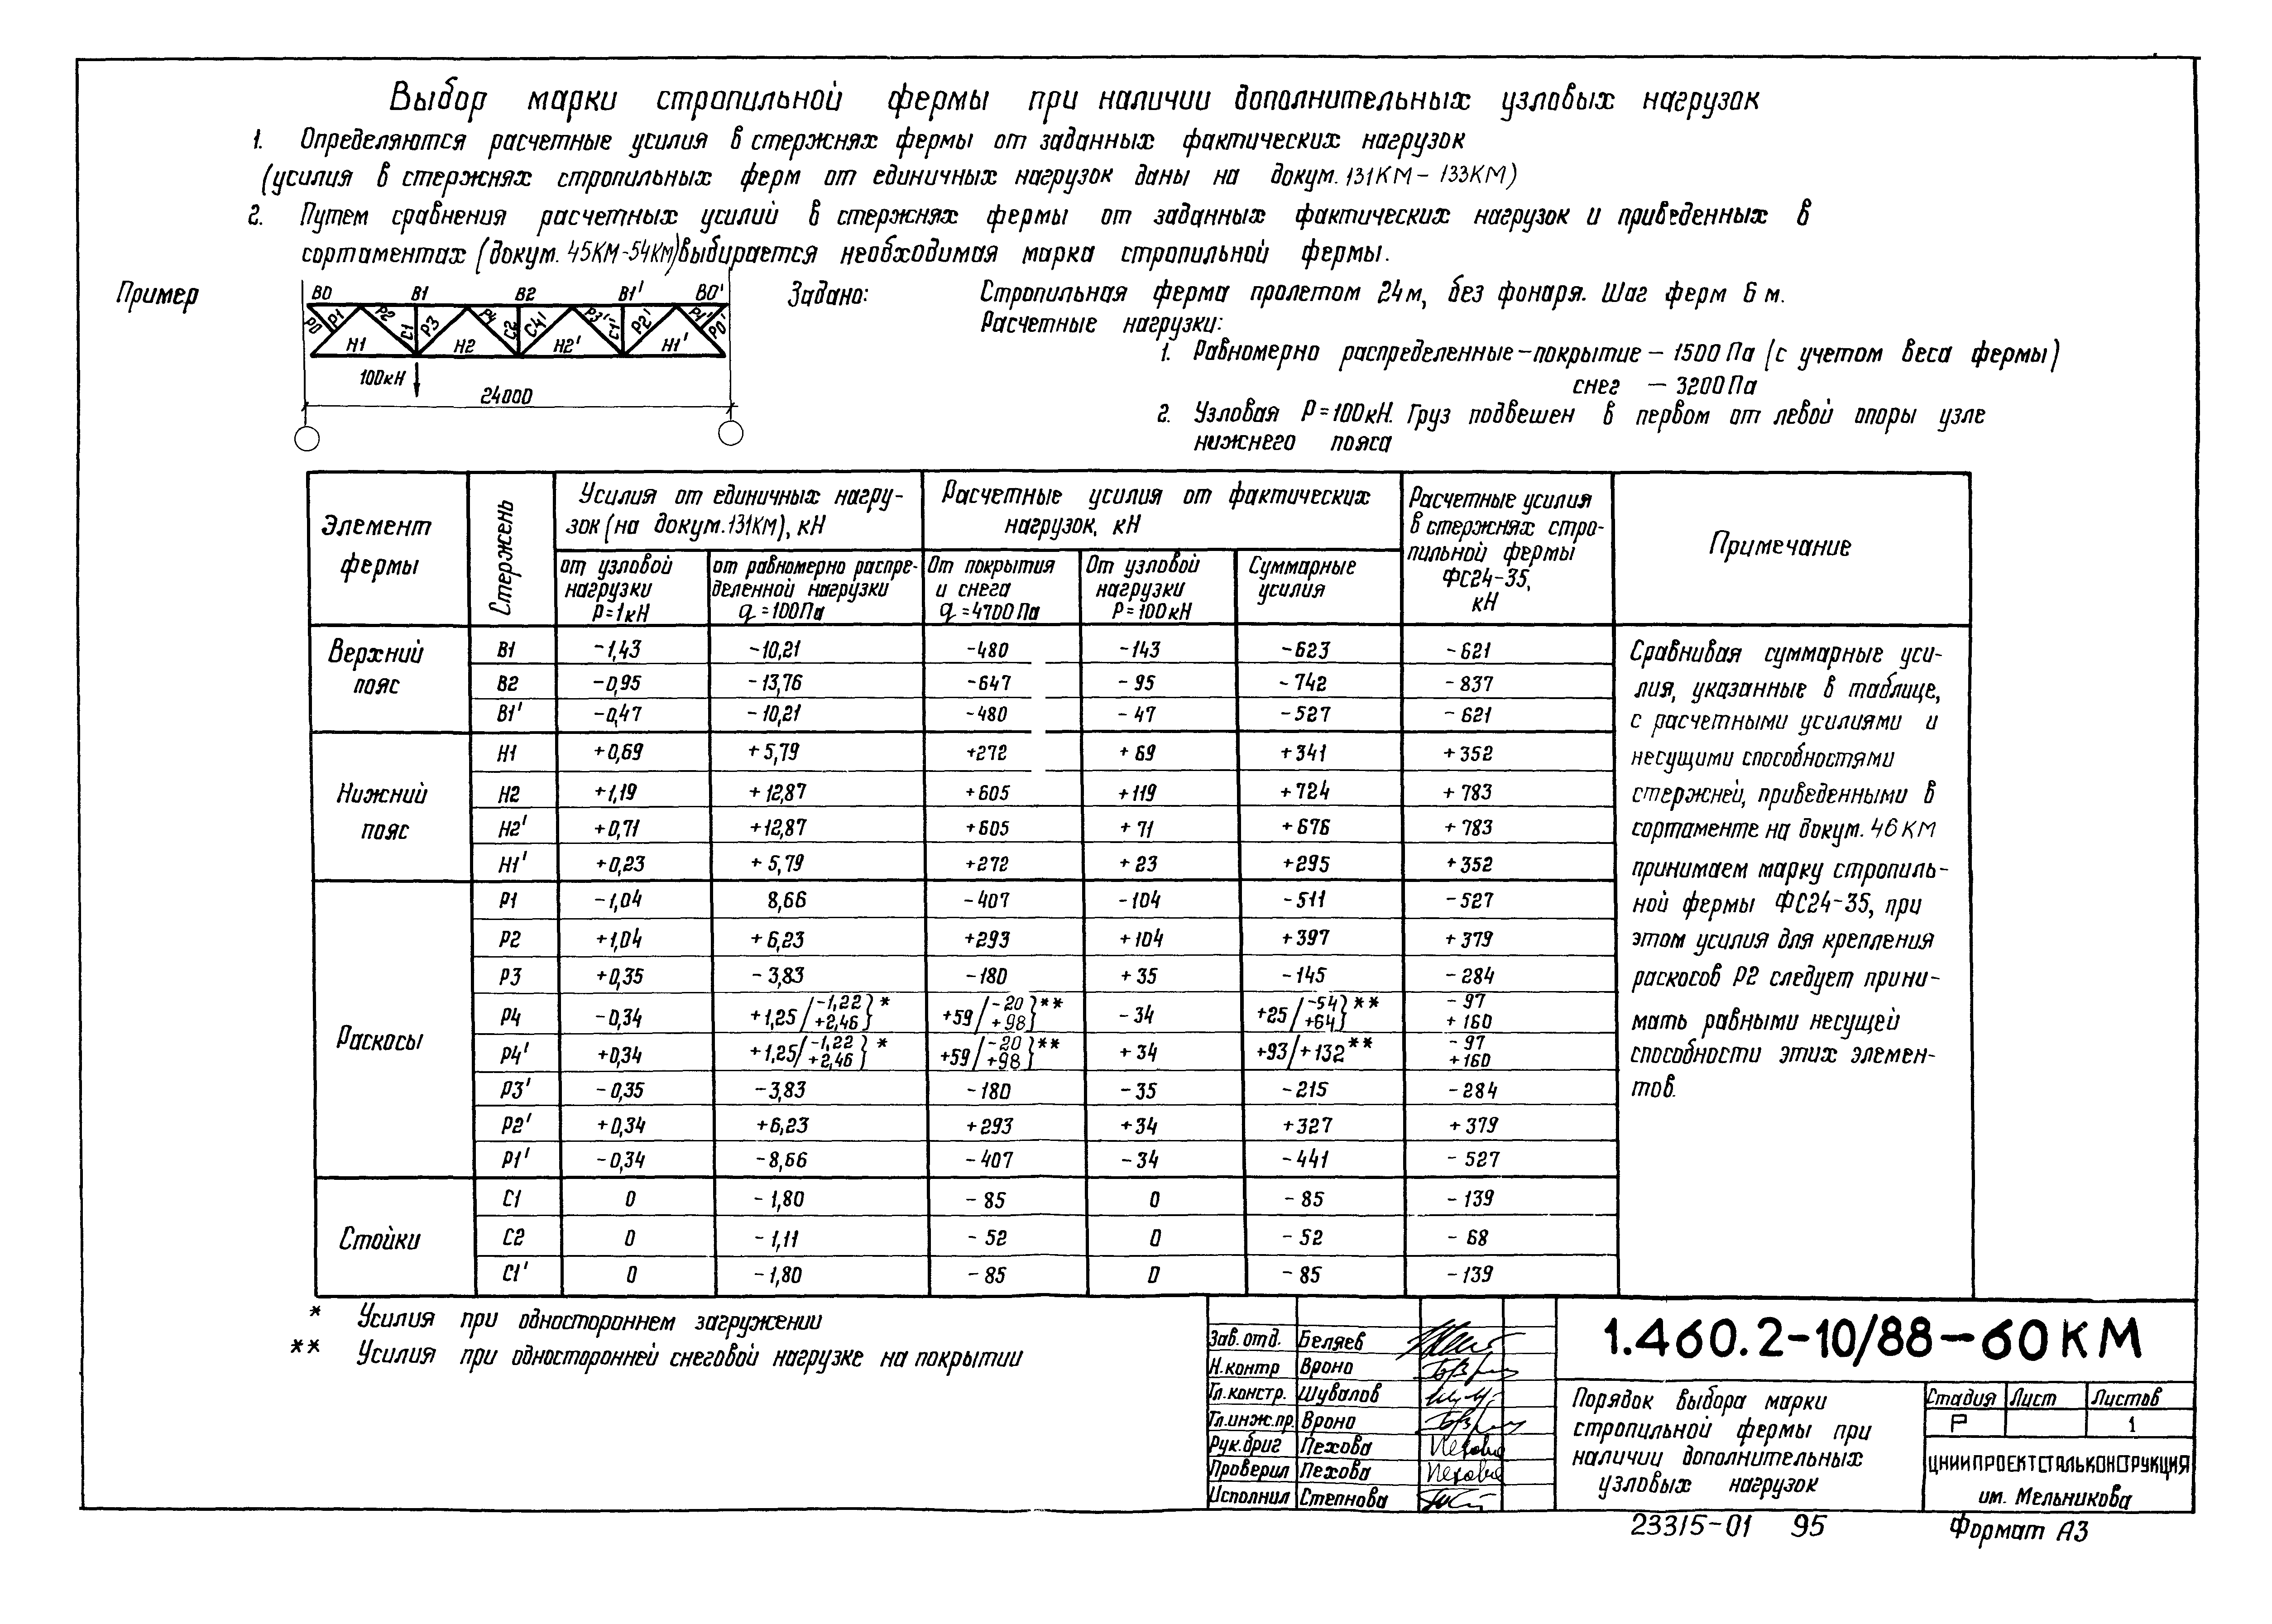 Выбор марки стропильной фермы при наличии дополнительных узловых нагрузок
1. Определяются расчетные усилия в стержнях фермы от заданных фактических нагрузок
(усилия в стержнях стропильных ферм от единичных нагрузок даны на докум. 131КМ - 133КМ)
2. Путем сравнения расчетных усилий в стержнях фермы от заданных фактических нагрузок и приведенных в
сортаментах (докум. 45КМ-54КМ) выбирается необходимая марка стропильной фермы.
Пример
В0 В1 В2 В1' В0'
Р0 Р1 Р2 С1 Р3 Р4 С2 С4' Р3' С1' Р2' Р1' Р0'
Н1 Н2 Н2' Н1'
100кН
24000
Задано:
Стропильная ферма пролетом 24м, без фонаря. Шаг ферм 6 м.
Расчетные нагрузки:
1. Равномерно распределенные - покрытие - 1500 Па (с учетом веса фермы)
снег - 3200 Па
2. Узловая Р = 100кН. Груз подвешен в первом от левой опоры узле
нижнего пояса
Элемент фермы
Стержень
Усилия от единичных нагру-
зок (на докум. 131КМ), кН
от узловой нагрузки Р=1кН
от равномерно распре-
деленной нагрузки
q = 100Па
Расчетные усилия от фактических
нагрузок, кН
От покрытия и снега q = 4700 Па
От узловой нагрузки Р = 100кН
Суммарные усилия
Расчетные усилия
в стержнях стро-
пильной фермы
ФС24-35,
кН
Примечание
Верхний пояс
В1 -1,43 -10,21 -480 -143 -623 -621
В2 -0,95 -13,76 -647 -95 -742 -837
В1' -0,47 -10,21 -480 -47 -527 -621
Нижний пояс
Н1 +0,69 +5,79 +272 +69 +341 +352
Н2 +1,19 +12,87 +605 +119 +724 +783
Н2' +0,71 +12,87 +605 +71 +676 +783
Н1' +0,23 +5,79 +272 +23 +295 +352
Раскосы
Р1 -1,04 8,66 -407 -104 -511 -527
Р2 +1,04 +6,23 +293 +104 +397 +379
Р3 +0,35 -3,83 -180 +35 -145 -284
Р4 -0,34 +1,25 / -1,22 +2,46 } * +59 / -20 +98 } ** -34 +25 / -54 +64 } ** -97 +160
Р4' +0,34 +1,25 / -1,22 +2,46 } * +59 / -20 +98 } ** +34 +93 / +132 ** -97 +160
Р3' -0,35 -3,83 -180 -35 -215 -284
Р2' +0,34 +6,23 +293 +34 +327 +379
Р1' -0,34 -8,66 -407 -34 -441 -527
Стойки
С1 0 -1,80 -85 0 -85 -139
С2 0 -1,11 -52 0 -52 -68
С1' 0 -1,80 -85 0 -85 -139
Сравнивая суммарные уси-
лия, указанные в таблице,
с расчетными усилиями и
несущими способностями
стержней, приведенными в
сортаменте на докум. 46 КМ
принимаем марку стропиль-
ной фермы ФС24-35, при
этом усилия для крепления
раскосов Р2 следует прини-
мать равными несущей
способности этих элемен-
тов.
* Усилия при одностороннем загружении
** Усилия при односторонней снеговой нагрузке на покрытии
Зав. отд. Беляев
Н. контр Вроно
Гл. констр. Шувалов
Гл. инж. пр. Вроно
Рук. бриг Пехова
Проверил Пехова
Исполнил Степнова
1.460.2-10/88-60КМ
Порядок выбора марки
стропильной фермы при
наличии дополнительных
узловых нагрузок
Стадия Лист Листов
Р 1
ЦНИИПРОЕКТСТАЛЬКОНСТРУКЦИЯ
им. Мельникова
23315-01 95
Формат А3